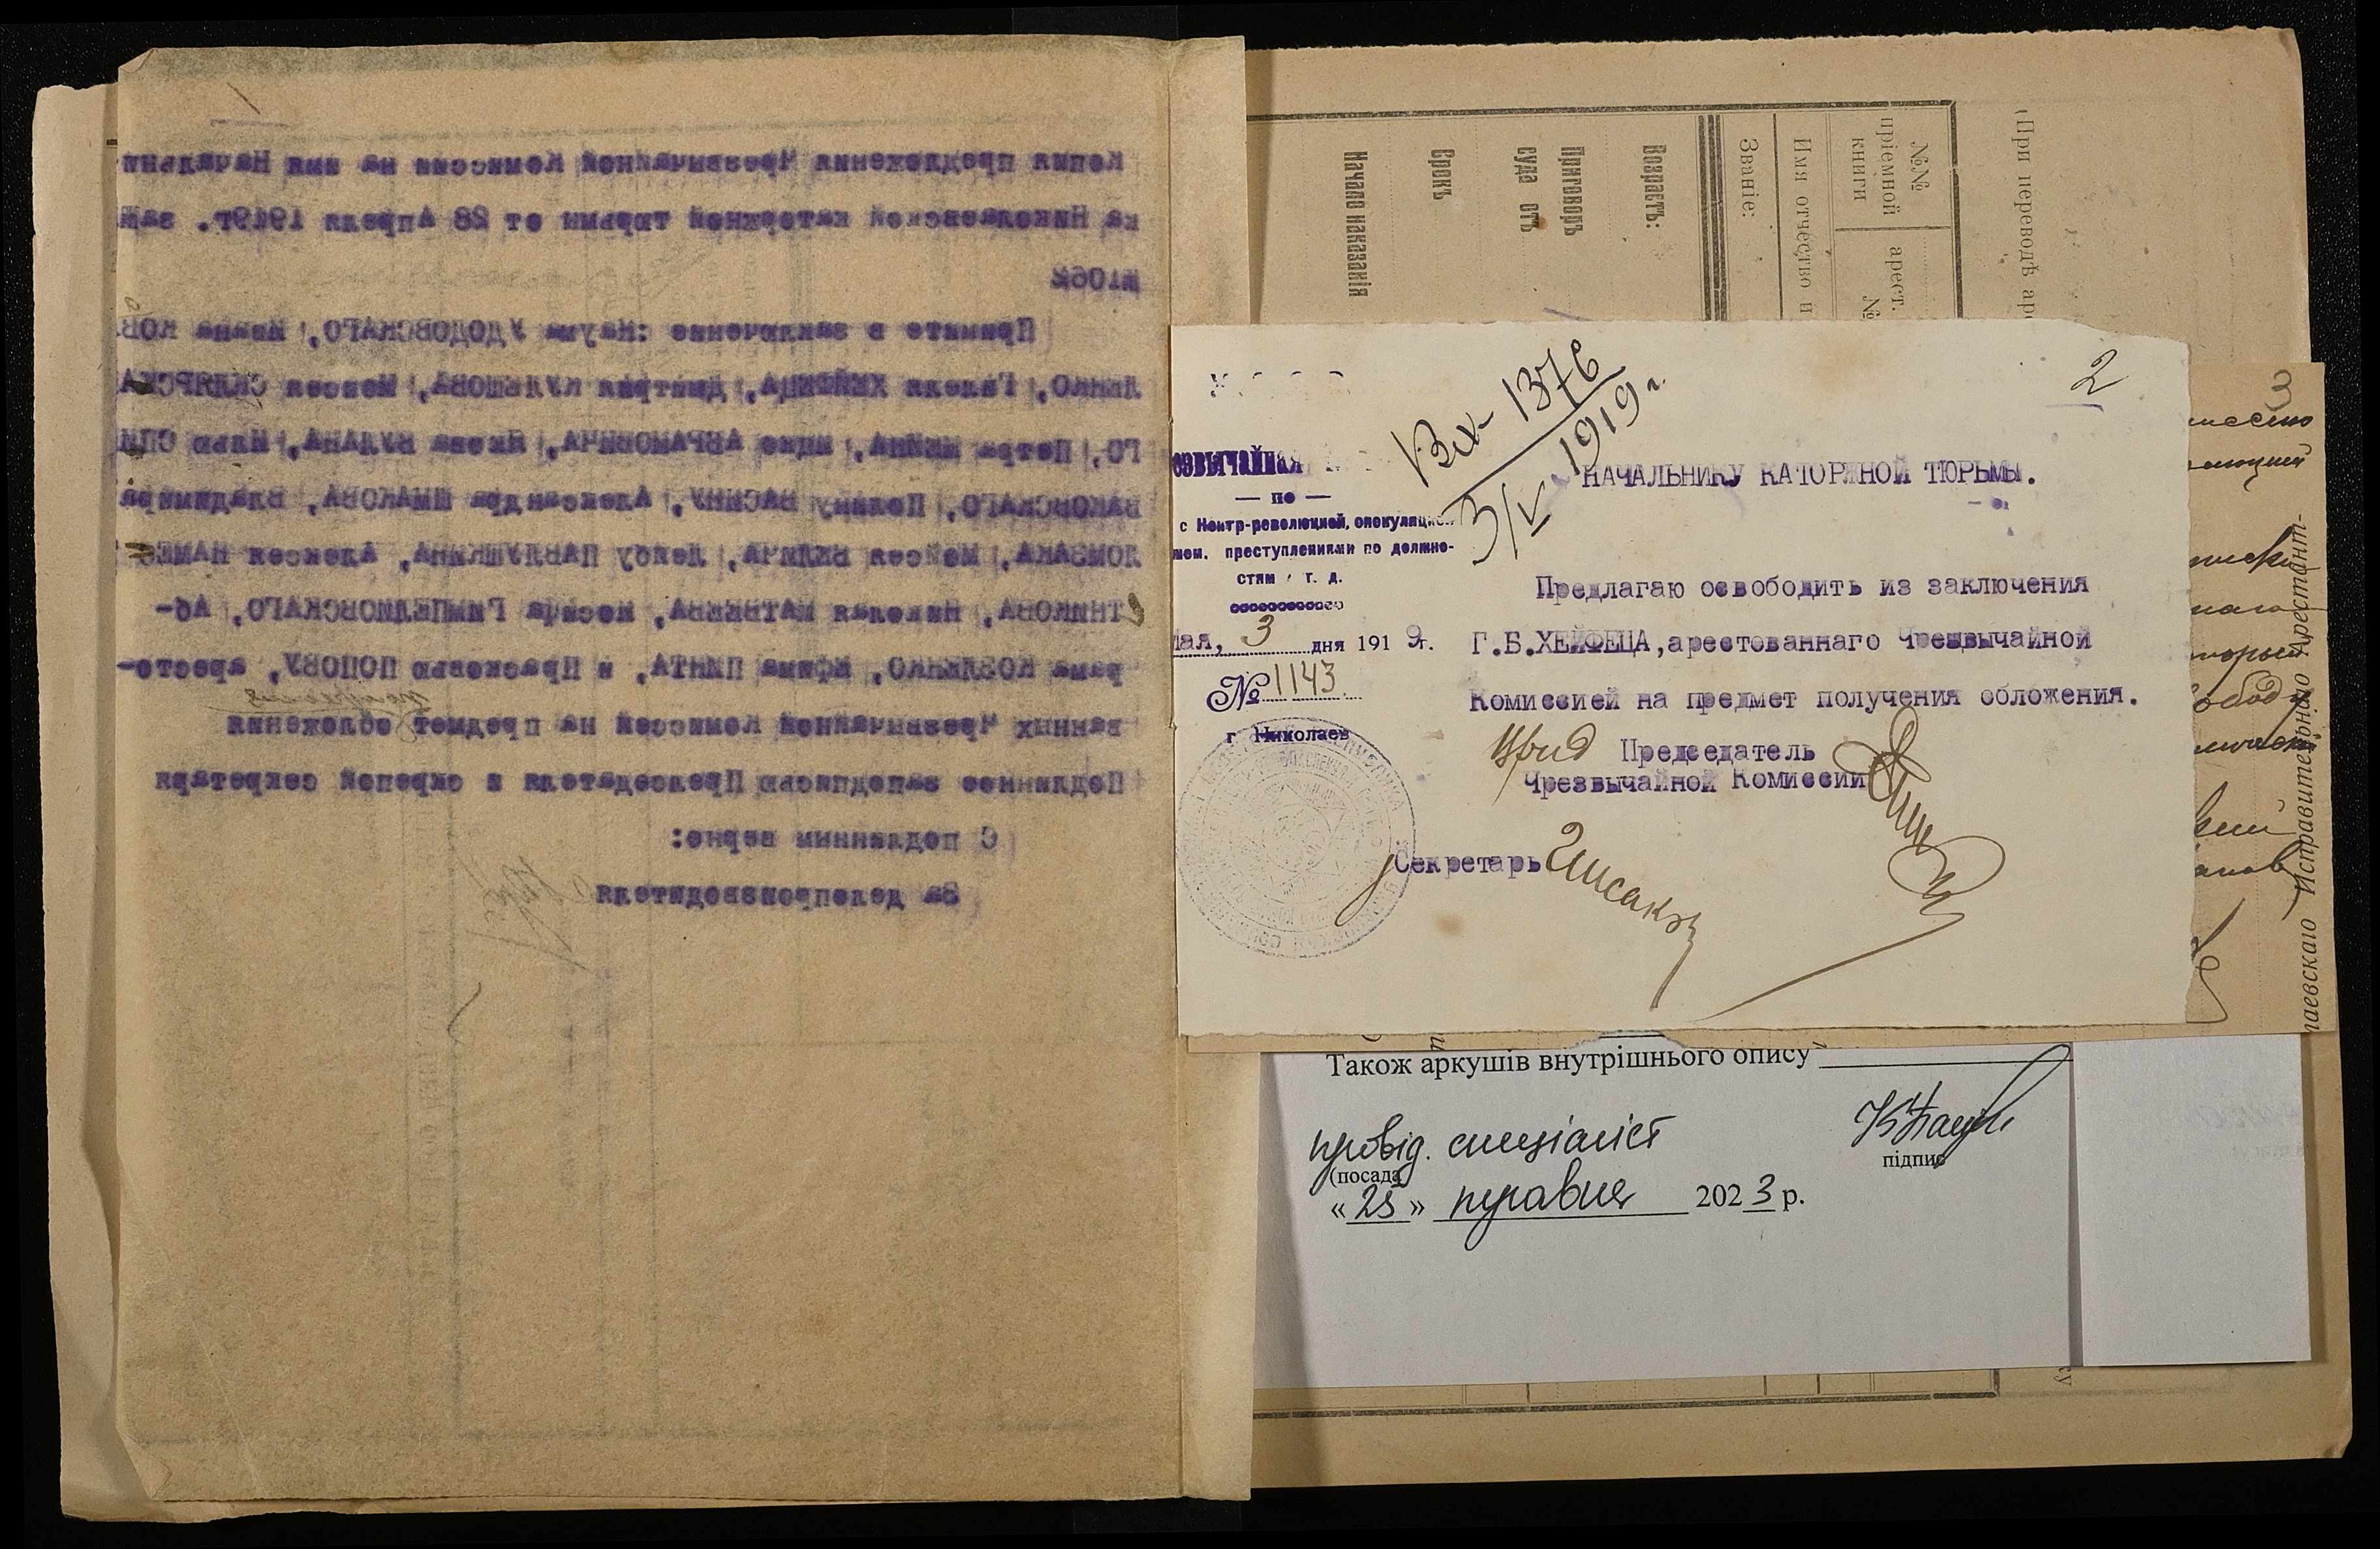 1
Копия предложения Чрезвычайной Комиссии на имя Начальни
ка Николаевской каторжной тюрьмы от 28 Апреля 1919г. за№
№1062
Примите в заключение :Наума УДОДОВСКАГО, Ивана КОВ
ЛЕНКО, Гилеля ХЕЙФЕЦА, Дмитрия КУЛЬШОВА, Моисея СКЛЯРСКА
ГО, Петра
АВРАМОВИЧА, Якова
Илью СПИ
ВАКОВСКАГО, Полину ВАСИНУ, Александра ШМАКОВА, Владимира
ЛОМЗАКА, Мойсея
ПАВЛУШКИНА, Алексея НАМЕС
ТНИКОВА, Николая МАТВЕЕВА, Иосифа
Аб-
рама КОЗЛЕНКО, Ефима ПИНТА, и Прасковью ПОПОВУ, аресто-
получения
ванных Чрезвычайной Комиссей на предмет обложения
Подлинное
подписью Председателя и скрепой секретаря
С подлинным верно:
За делопроизводителя
(При переводѣ ар
№№ пріемной книги
арест. №
Имя отчество и
Званіе:
Возрастъ:
Приговоръ суда отъ
Срокъ
Начало наказанія
2
Вх 1376
3/V 1919 г.
езвычайная
— по —
с Контр-революцией, спекуляцией
преступлениями по должно-
стям и т. д.
Мая, 3 дня 1919г.
№ 1143
г. Николаев
НАЧАЛЬНИКУ КАТОРЖНОЙ ТЮРЬМЫ.
Предлагаю освободить из заключения
Г.Б.ХЕЙФЕЦА,арестованнаго Чрезвычайной
Комиссией на предмет получения обложения.
Врид Председатель
Чрезвычайной Комиссии
Секретарь
3
лаевскаго Исправительнаго Арестант-
Також аркушів внутрішнього опису
провід. спеціаліст
(посада)
підпис
«25» травня 2023 р.